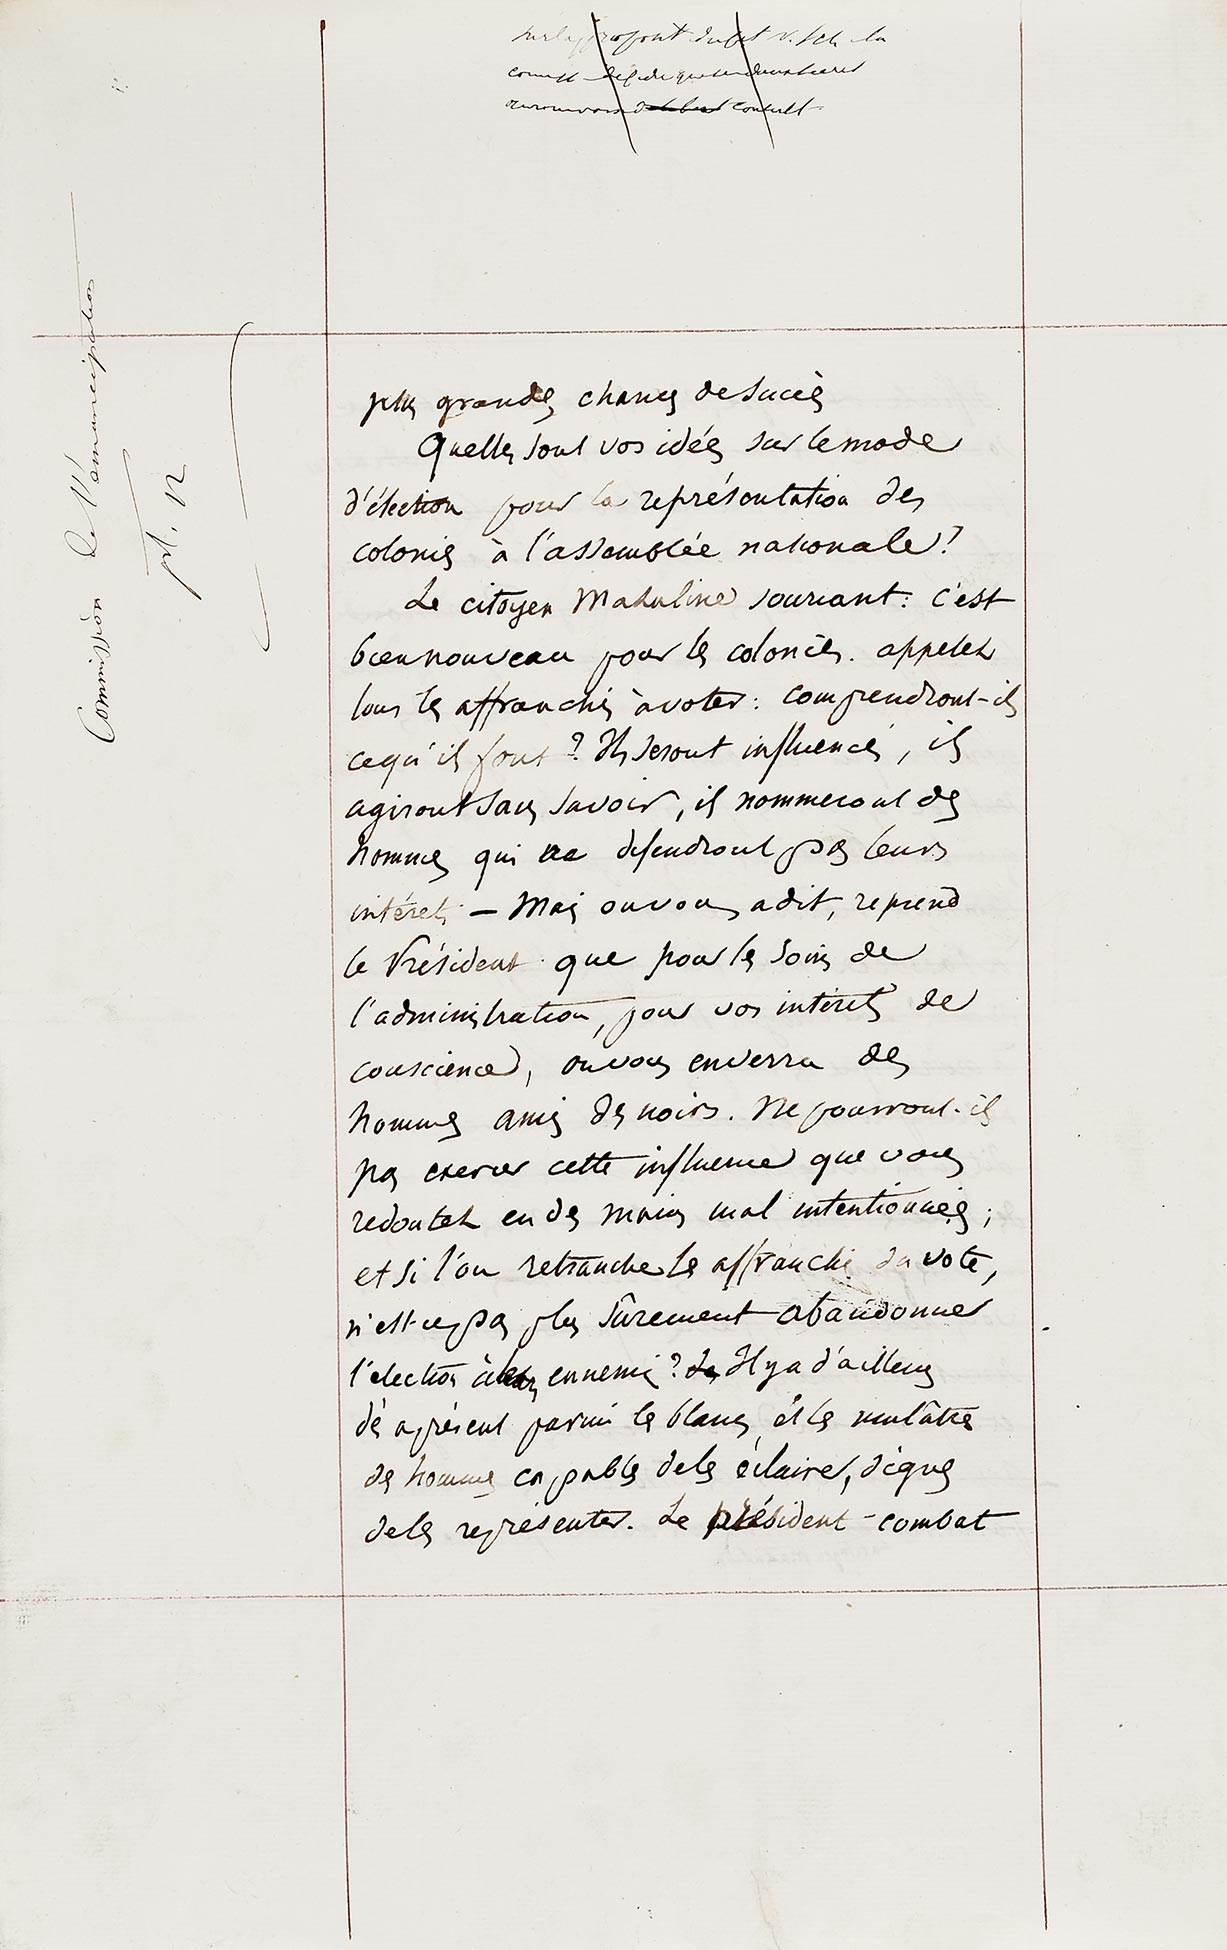 Commission de l'émancipation
pt. 12
plus grandes chances de succès
Quelles sont vos idées sur le mode
d'élection pour la représentation des
colonies à l'assemblée nationale?
Le citoyen Mathuline souriant: c'est
bien nouveau pour les colonies. appelez
tous les affranchis à voter: comprendront-ils
ce qu'ils font? Ils seront influencés, ils
agiront sans savoir, ils nommeront des
hommes qui ne défendront pas leurs
intérêts - Mais on vous a dit, reprend
le Président que pour les soins de
l'administration, pour vos intérêts de
conscience, on vous enverra des
hommes amis des noirs. Ne pourront-ils
pas exercer cette influence que vous
redoutez en des mains mal intentionnées;
et si l'on retranche les affranchis du vote,
n'est-ce pas plus sûrement abandonner
l'élection à ennemis? Il y a d'ailleurs
dès à présent parmi les blancs et les mulâtres
des hommes capables de les éclairer, dignes
de les représenter. Le président combat